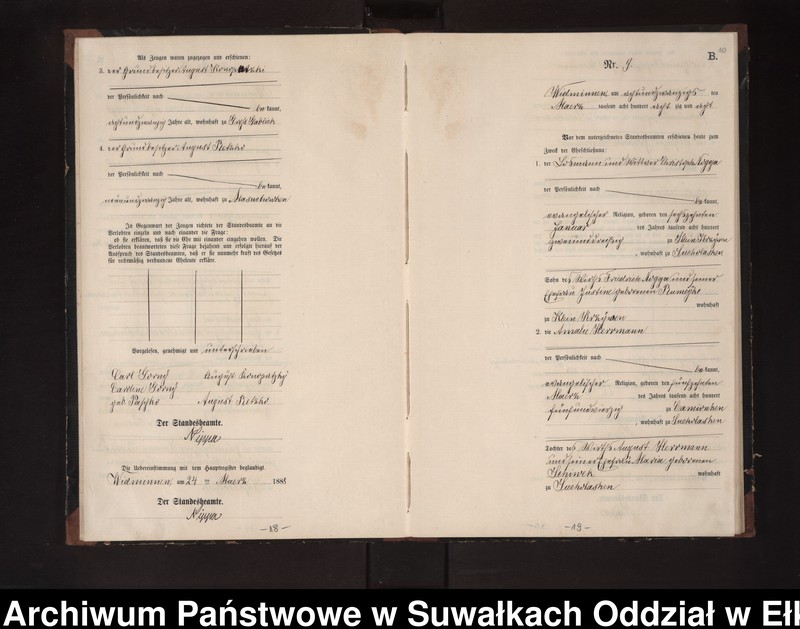 Als Zeugen waren zugezogen und erschienen:
3. der Grundbesitzer August Konopatzki
der Persönlichkeit nach
be kannt,
achtundzwanzig Jahre alt, wohnhaft zu Groß Gablick
4. der Grundbesitzer August Retzko
der Persönlichkeit nach
be kannt,
Jahre alt, wohnhaft zu
In Gegenwart der Zeugen richtete der Standesbeamte an die
Verlobten einzeln und nach einander die Frage:
ob sie erklären, daß sie die Ehe mit einander eingehen wollen. Die
Verlobten beantworteten diese Frage bejahend und erfolgte hierauf der
Ausspruch des Standesbeamten, daß er sie nunmehr kraft des Gesetzes
für rechtmäßig verbundene Eheleute erkläre.
Vorgelesen, genehmigt und unterschrieben
Carl Gorny August Konopatzky
Caroline Gorny
geb. August Retzko
Der Standesbeamte.
Nippa
Die Uebereinstimmung mit dem Hauptregister beglaubigt.
Widminnen am 24 ten Maerz 188
Der Standesbeamte.
Nippa
-18-
B.
40
Nr. 9.
Widminnen am achtundzwanzigs ten
Maerz tausend acht hundert acht zig und acht
Vor dem unterzeichneten Standesbeamten erschienen heute zum
Zweck der Eheschließung:
1. der Losmann und Wittwer Christoph Rogga
der Persönlichkeit nach
be kannt,
evangelischer Religion, geboren den sechszehnten
Januar des Jahres tausend acht hundert
zweiunddreißig zu Klein
, wohnhaft zu Sucholasken
Sohn des Wirths Friedrich Rogga und seiner
Ehefrau Justine geborenen
wohnhaft
zu Klein
2. die Amalie Herrmann
der Persönlichkeit nach
be kannt,
evangelischer Religion, geboren den fünfzehnten
Maerz des Jahres tausend acht hundert
fünfundvierzig zu
, wohnhaft zu Sucholasken
Tochter des Wirths August Herrmann
und seiner Ehefrau Maria geborenen
wohnhaft
zu Sucholasken
-19-
Archiwum Państwowe w Suwałkach Oddział w Eł